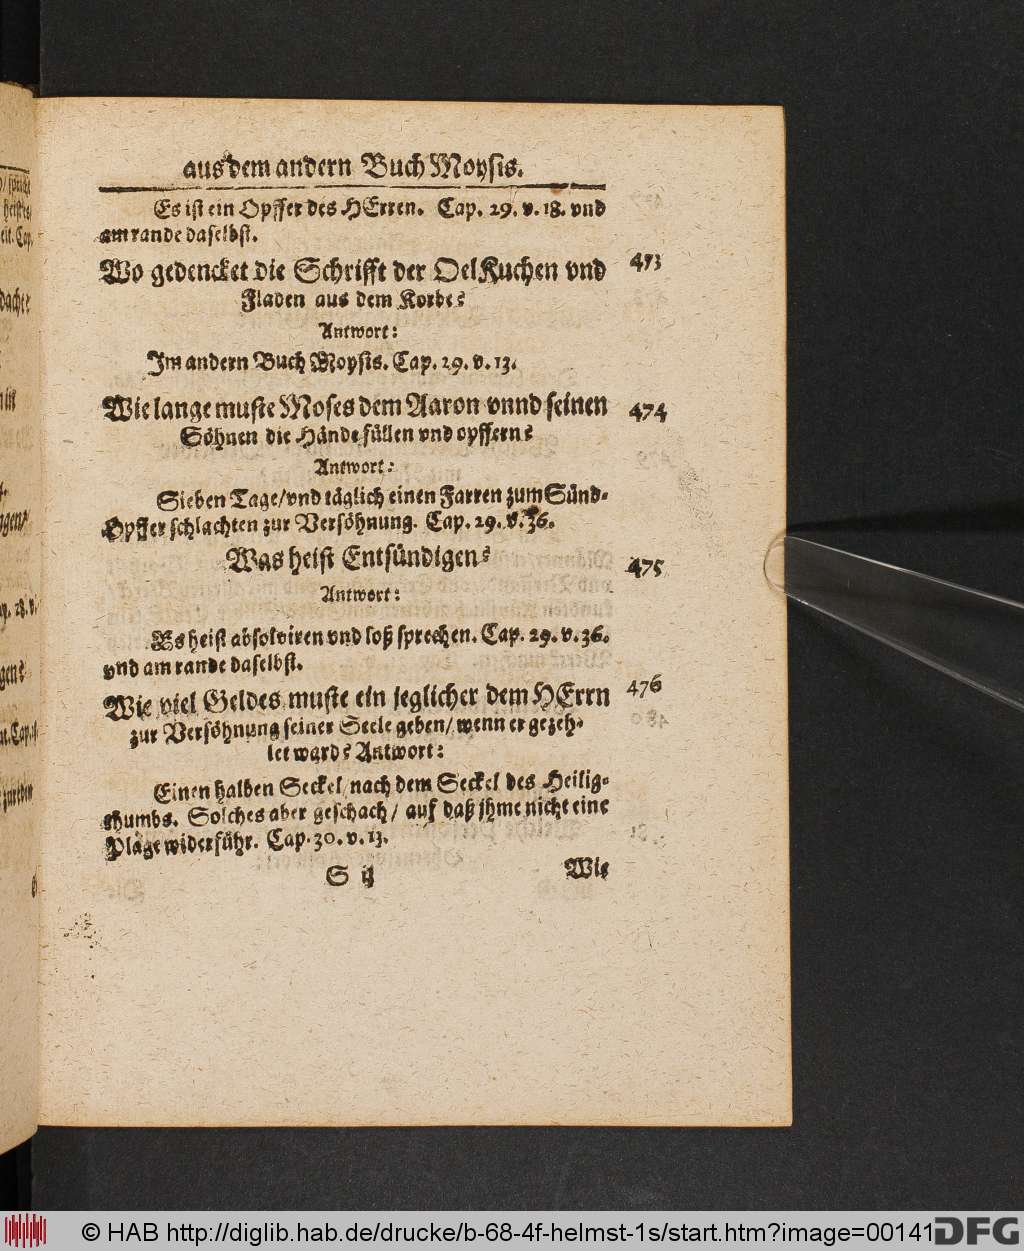 aus dem andern Buch Moysis.
Es ist ein Opffer des HErren. Cap. 29. v. 18. vnd
am rande daselbst.
Wo gedencket die Schrifft der OelKuchen vnd
Fladen aus dem Korbe?
473
Antwort:
Im andern Buch Moysis. Cap. 29. v. 13.
Wie lange muste Moses dem Aaron vnnd seinen
Söhnen die Hände füllen vnd opffern?
474
Antwort:
Sieben Tage/vnd täglich einen Farren zum Sünd-
Opffer schlachten zur Versöhnung. Cap. 29. v. 36.
Was heist Entsündigen?
475
Antwort:
Es heist absolviren vnd loß sprechen. Cap. 29. v. 36.
vnd am rande daselbst.
Wie viel Geldes muste ein jeglicher dem HErrn
zur Versöhnung seiner Seele geben/ wenn er gezeh-
let ward? Antwort:
476
Einen halben Seckel/nach dem Seckel des Heilig-
thumbs. Solches aber geschach/ auf daß jhme nicht eine
Plage widerführ. Cap. 30. v. 13.
S ij
Wie
© HAB http://diglib.hab.de/drucke/b-68-4f-helmst-1s/start.htm?image=00141
DFG